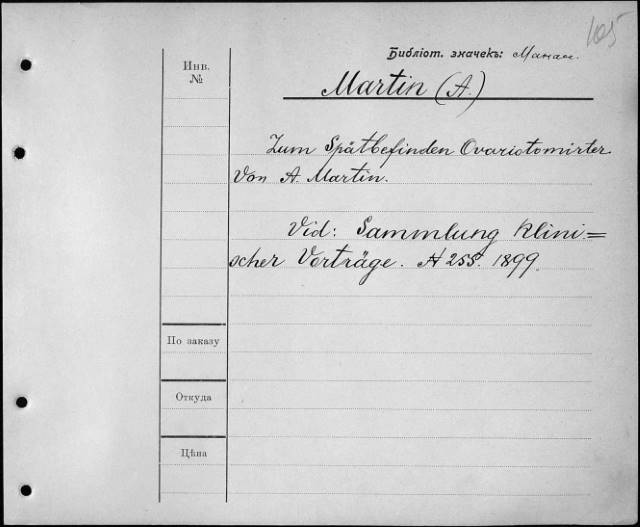 105
Библіот. значекъ:
Инв.
№
Martin (A.)
Zum Spätbefinden Ovariotomirter
Von A. Martin.
Vid: Sammlung Klini=
scher Vorträge. № 255. 1899.
По заказу
Откуда
Цѣна